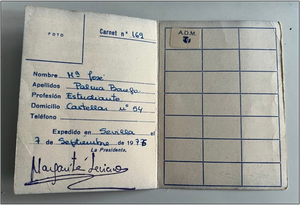 FOTO
Carnet n° 169
Nombre Mª José
Apellidos Palma
Profesión Estudiante
Domicilio Castellar nº 54
Teléfono
Expedido en Sevilla el
7 de Septiembre de 197
La Presidenta,
Margarita
A.D.M.